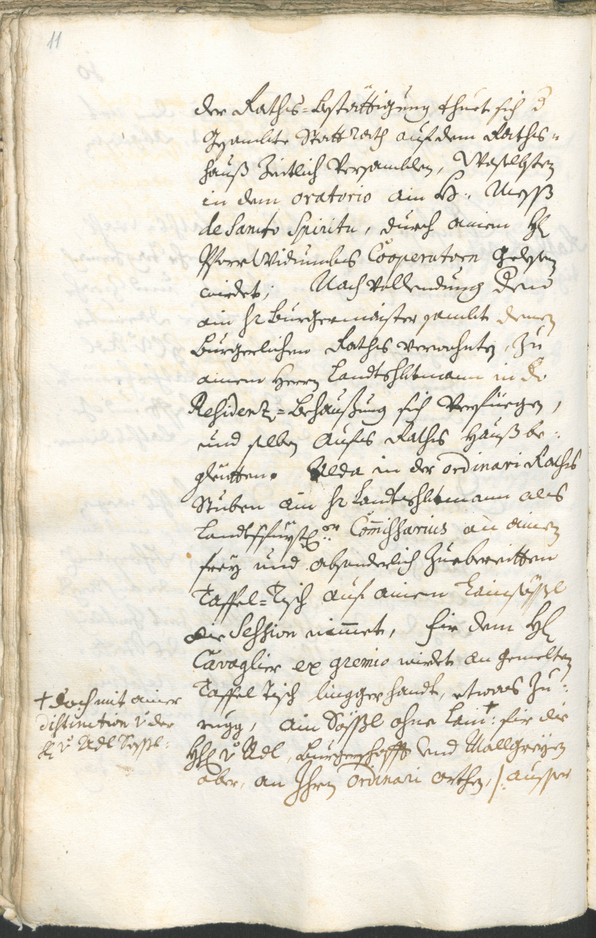 11
der Raths=bestättigung thuet sich d
Gesambte Statt Rath auf dem Raths=
hauß Zeitlich Versamblen, Woselbsten
in dem oratorio ain H: Mesß
de Sancto Spiritu, durch ainen H
Pfarr Cooperatorn gelesen
wirdet; Nach Vollendung deme
ain hr burgermaister sambt denen
burgerlichen Raths verwohnten, Zu
ainem Herrn Landtshbtmann in die
Residentz=behausung sich Verfüegen,
und selben aufs Raths Hauß be=
glaitten. Alda in der ordinari Raths
Stuben ain hr Landtshbtmann als
Landtsfürstl: Commissarius an ainen
frey und absonderlich Zueberaitten
Taffel=Tisch auf ainem Lainsössl
die Session nimmet, für dem H
Cavaglier ex gremio wirdt an gemelten
Taffel Tisch lingger handt, etwas Zu=
rugg, ain Sössl ohne Lain: + für die
H v Adl, burgerschafft und
aber, an Ihren ordinari orthen, /: ausser
+ doch mit ainer
distinction v der
H v Adl Sössl: